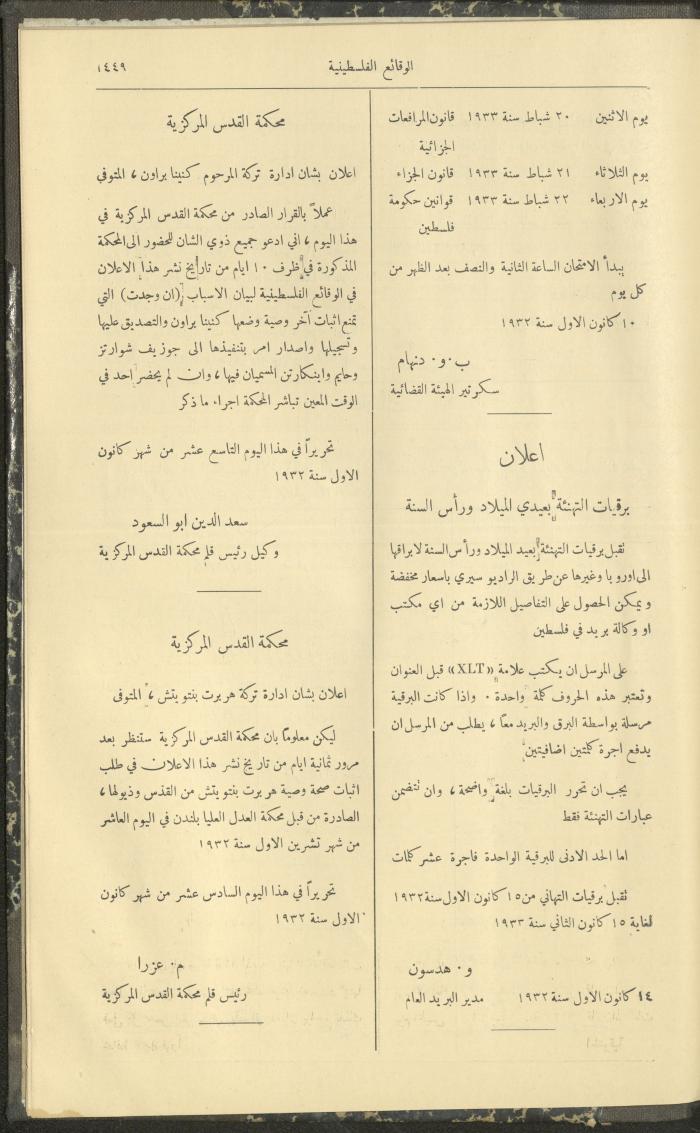 الوقائع الفلسطينية
١٤٤٩
يوم الاثنين ٢٠ شباط سنة ١٩٣٣ قانون المرافعات
الجزائية
يوم الثلاثاء ٢١ شباط سنة ١٩٣٣ قانون الجزاء
يوم الاربعاء ٢٢ شباط سنة ١٩٣٣ قوانين حكومة
فلسطين
يبدأ الامتحان الساعة الثانية والنصف بعد الظهر من
كل يوم
١٠ كانون الاول سنة ١٩٣٢
ب٠ و٠ دنهام
سكرتير الهيئة القضائية
اعلان
برقيات التهنئة بعيدي الميلاد ورأس السنة
تقبل برقيات التهنئة بعيد الميلاد ورأس السنة لابراقها
الى اوروبا وغيرها عن طريق الراديو سيري باسعار مخفضة
ويمكن الحصول على التفاصيل اللازمة من اي مكتب
او وكالة بريد في فلسطين
على المرسل ان يكتب علامة «XLT» قبل العنوان
وتعتبر هذه الحروف كلمة واحدة ٠ واذا كانت البرقية
مرسلة بواسطة البرق والبريد معًا ، يطلب من المرسل ان
يدفع اجرة كلمتين اضافيتين
يجب ان تحرر البرقيات بلغة واضحة ، وان تتضمن
عبارات التهنئة فقط
اما الحد الادنى للبرقية الواحدة فاجرة عشر كلمات
تقبل برقيات التهاني من ١٥ كانون الاول سنة ١٩٣٢
لغاية ١٥ كانون الثاني سنة ١٩٣٣
و٠ هدسون
١٤ كانون الاول سنة ١٩٣٢ مدير البريد العام
محكمة القدس المركزية
اعلان بشان ادارة تركة المرحوم كنينا براون ، المتوفي
عملاً بالقرار الصادر من محكمة القدس المركزية في
هذا اليوم ، اني ادعو جميع ذوي الشان للحضور الى المحكمة
المذكورة في ظرف ١٠ ايام من تاريخ نشر هذا الاعلان
في الوقائع الفلسطينية لبيان الاسباب (ان وجدت) التي
تمنع اثبات آخر وصية وضعها كنينا براون والتصديق عليها
وتسجيلها واصدار امر بتنفيذها الى جوزيف شوارتز
وحايم وابنكارتن المسميان فيها ، وان لم يحضر احد في
الوقت المعين تباشر المحكمة اجراء ما ذكر
تحريراً في هذا اليوم التاسع عشر من شهر كانون
الاول سنة ١٩٣٢
سعد الدين ابو السعود
وكيل رئيس قلم محكمة القدس المركزية
محكمة القدس المركزية
اعلان بشان ادارة تركة هربرت بنتويتش ، المتوفى
ليكن معلومًا بان محكمة القدس المركزية ستنظر بعد
مرور ثمانية ايام من تاريخ نشر هذا الاعلان في طلب
اثبات صحة وصية هربرت بنتويتش من القدس وذيولها ،
الصادرة من قبل محكمة العدل العليا بلندن في اليوم العاشر
من شهر تشرين الاول سنة ١٩٣٢
تحريراً في هذا اليوم السادس عشر من شهر كانون
الاول سنة ١٩٣٢
م٠ عزرا
رئيس قلم محكمة القدس المركزية